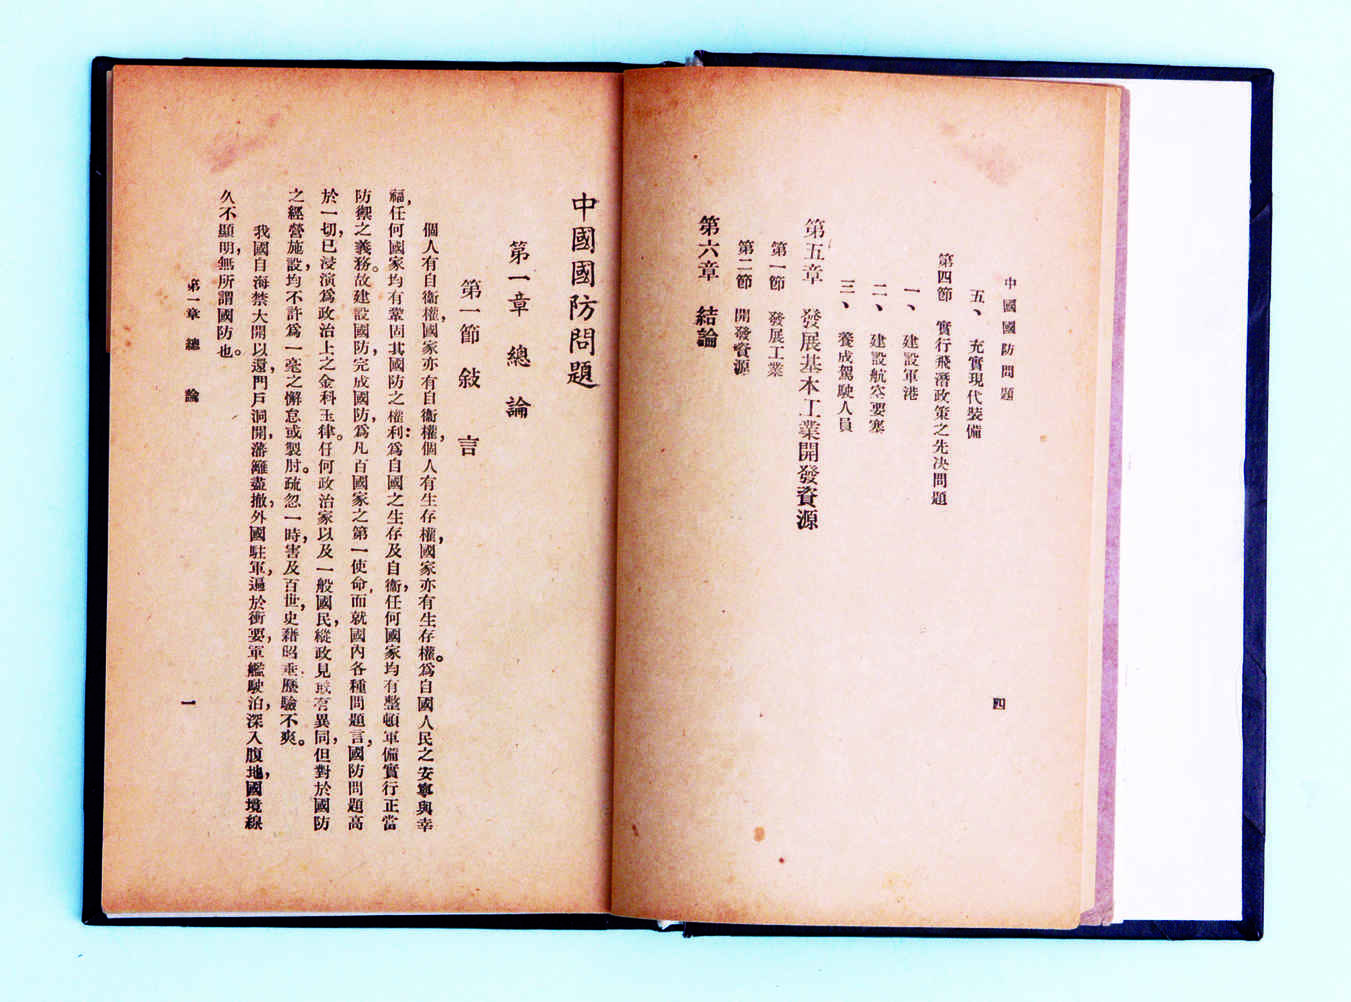 中國國防問題
四
五、　充實現代裝備
第四節　實行飛潛政策之先決問題
一、　建設軍港
二、　建設航空要塞
三、　養成駕駛人員
第五章　發展基本工業開發資源
第一節　發展工業
第二節　開發資源
第六章　結論
中國國防問題
第一章　總　論
第一節　敍　言
個人有自衞權，國家亦有自衞權，個人有生存權，國家亦有生存權。爲自國人民之安寧與幸
福，任何國家均有鞏固其國防之權利：爲自國之生存及自衞，任何國家均有整頓軍備實行正當
防禦之義務。故建設國防，完成國防，爲凡百國家之第一使命，而就國內各種問題言，國防問題高
於一切，已浸演爲政治上之金科玉律。任何政治家以及一般國民，縱政見或有異同，但對於國防
之經營施設，均不許爲一毫之懈怠或製肘。疏忽一時，害及百世，史藉昭垂，歷驗不爽。
我國自海禁大開以還，門戶洞開，藩籬盡撤，外國駐軍，遍於衝要，軍艦駛泊，深入腹地，國境線
久不顯明，無所謂國防也。
第一章　總　論
一